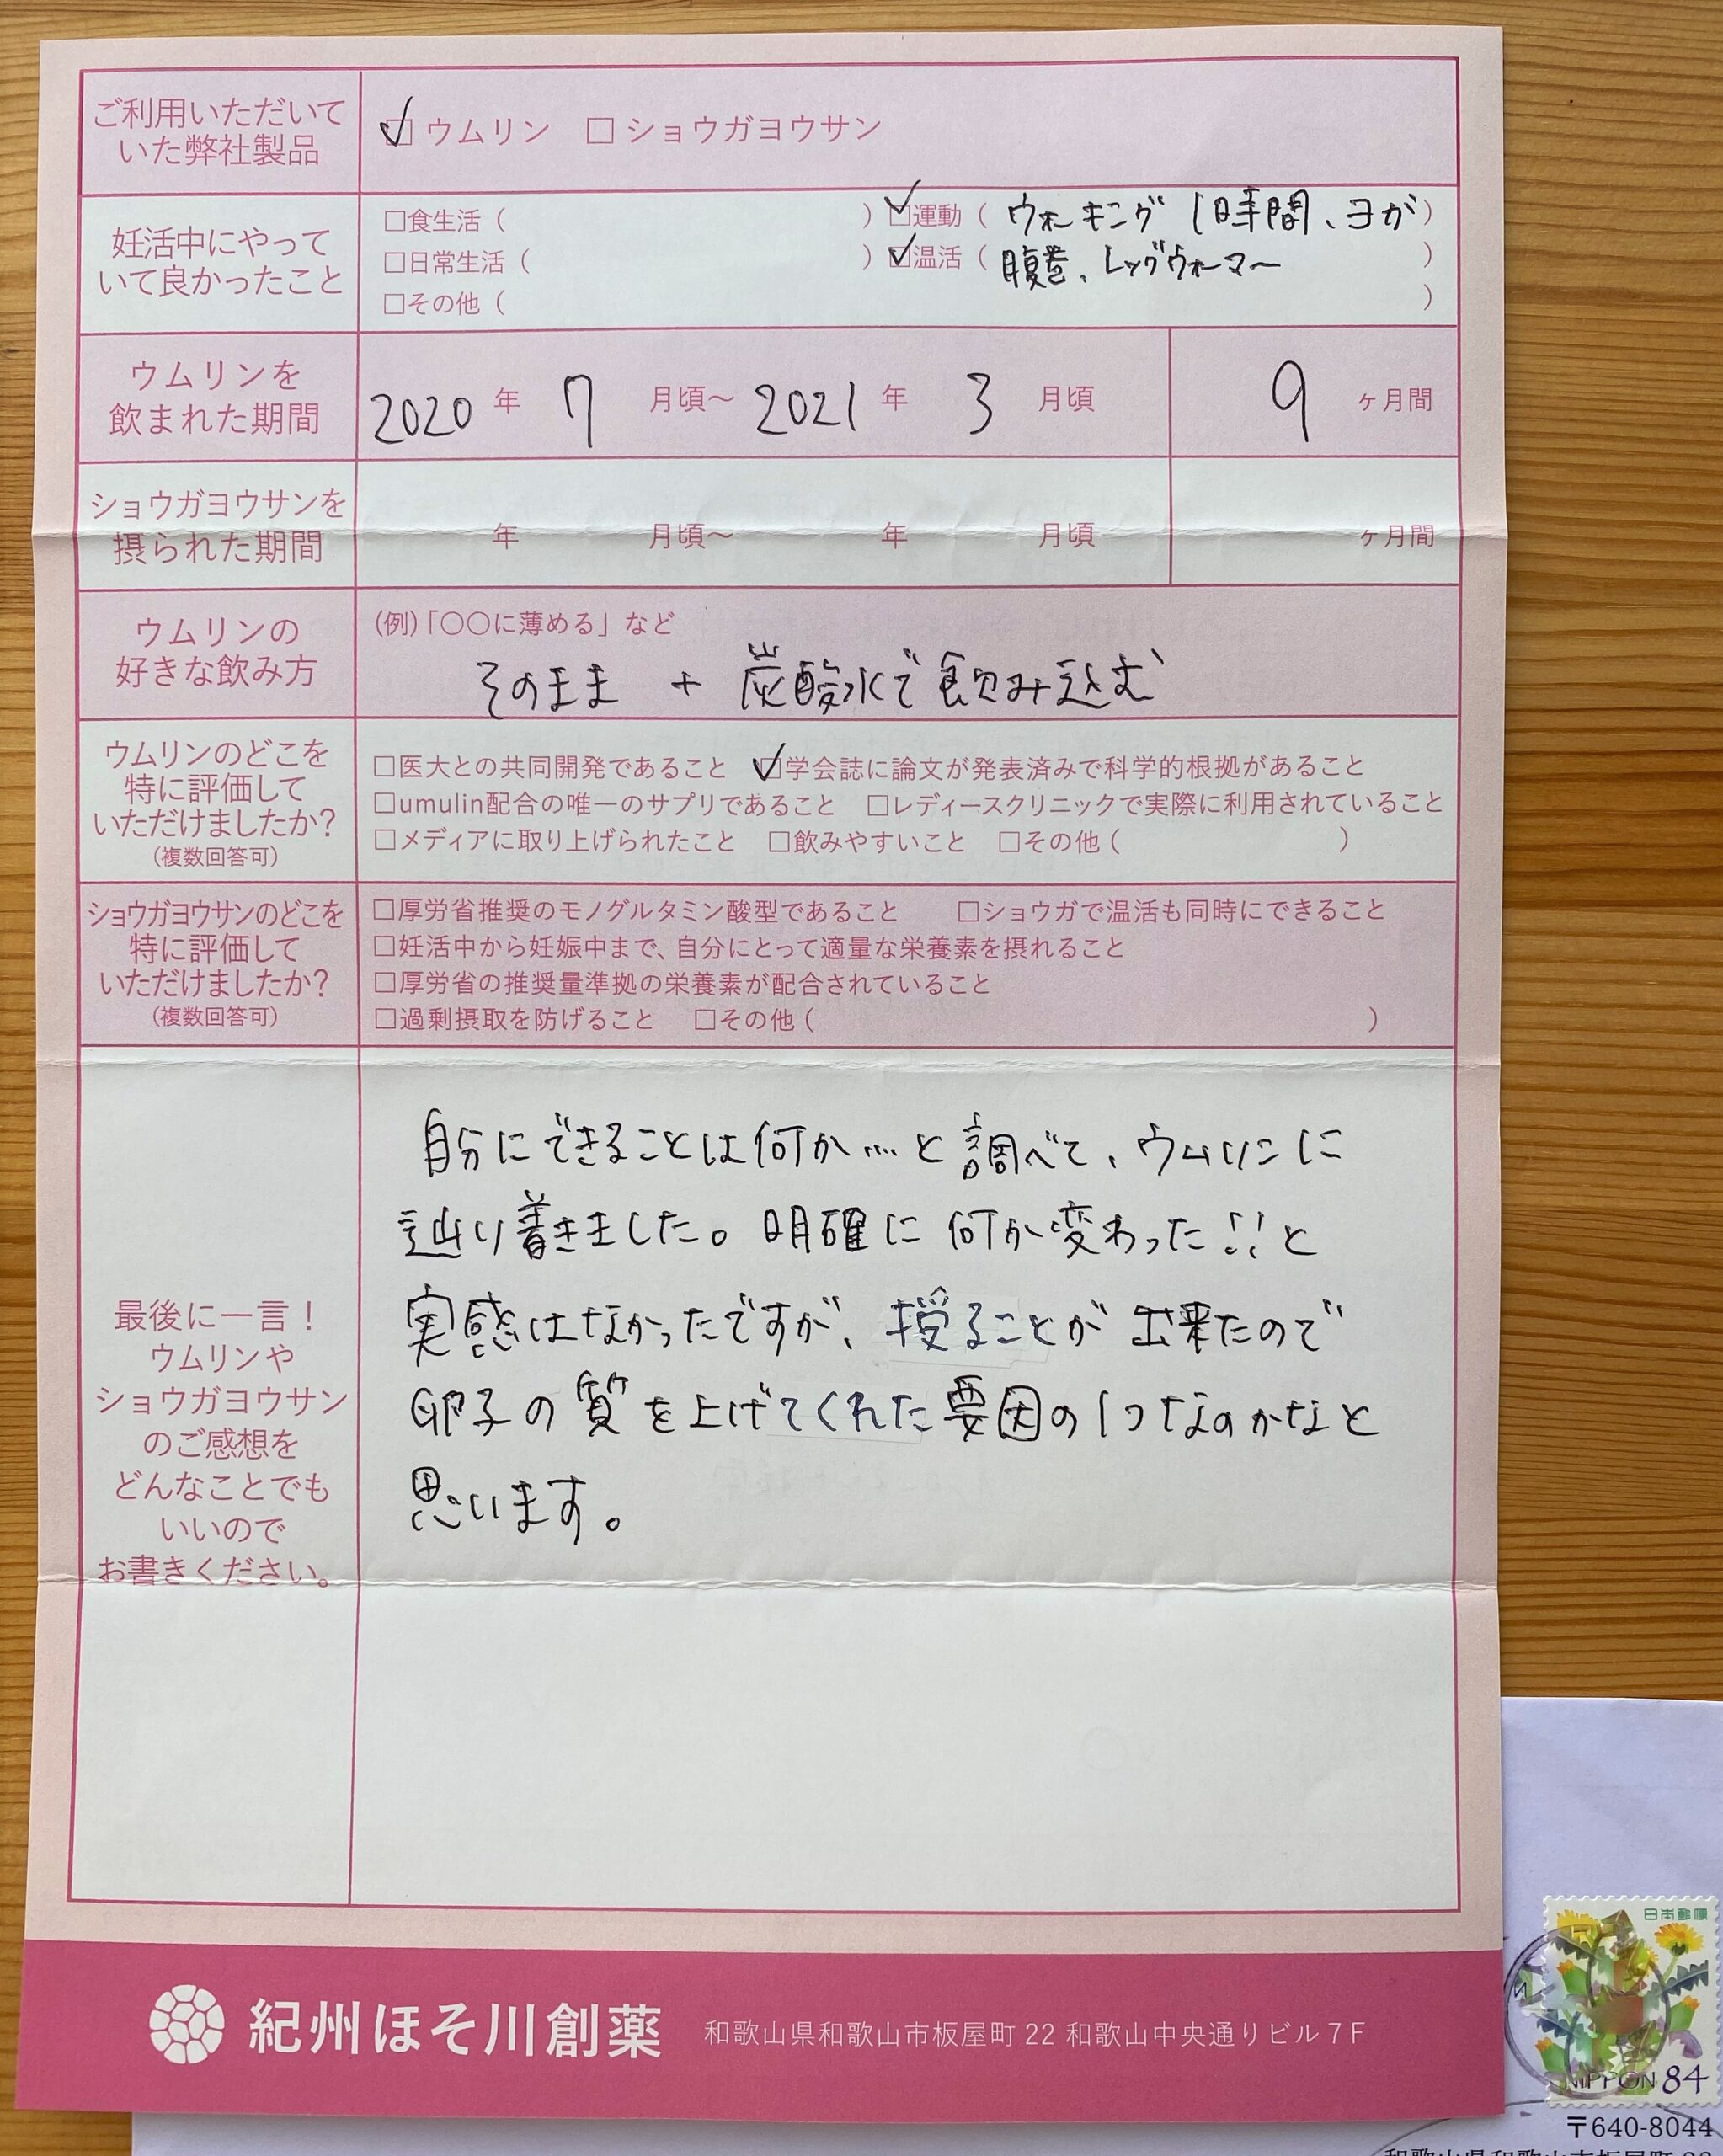 ご利用いただいて
いた弊社製品
☑ウムリン □ショウガヨウサン
妊活中にやって
いて良かったこと
□食生活（ ） ☑運動（ウォーキング1時間、ヨガ）
□日常生活（ ） ☑温活（腹巻、レッグウォーマー ）
□その他（ ）
ウムリンを
飲まれた期間
2020年 7月頃〜2021年 3月頃 9ヶ月間
ショウガヨウサンを
摂られた期間
年 月頃〜 年 月頃 ヶ月間
ウムリンの
好きな飲み方
(例)「〇〇に薄める」など
そのまま + 炭酸水で飲み込む
ウムリンのどこを
特に評価して
いただけましたか？
(複数回答可)
□医大との共同開発であること ☑学会誌に論文が発表済みで科学的根拠があること
□umulin配合の唯一のサプリであること □レディースクリニックで実際に利用されていること
□メディアに取り上げられたこと □飲みやすいこと □その他（ ）
ショウガヨウサンのどこを
特に評価して
いただけましたか？
(複数回答可)
□厚労省推奨のモノグルタミン酸型であること □ショウガで温活も同時にできること
□妊活中から妊娠中まで、自分にとって適量な栄養素を摂れること
□厚労省の推奨量準拠の栄養素が配合されていること
□過剰摂取を防げること □その他（ ）
最後に一言！
ウムリンや
ショウガヨウサン
のご感想を
どんなことでも
いいので
お書きください。
自分にできることは何か…と調べて、ウムリンに
辿り着きました。明確に何か変わった!!と
実感はなかったですが、授ることが出来たので
卵子の質を上げてくれた要因の1つなのかなと
思います。
紀州ほそ川創薬 和歌山県和歌山市板屋町22 和歌山中央通りビル7F
日本郵便
NIPPON 84
〒640-8044